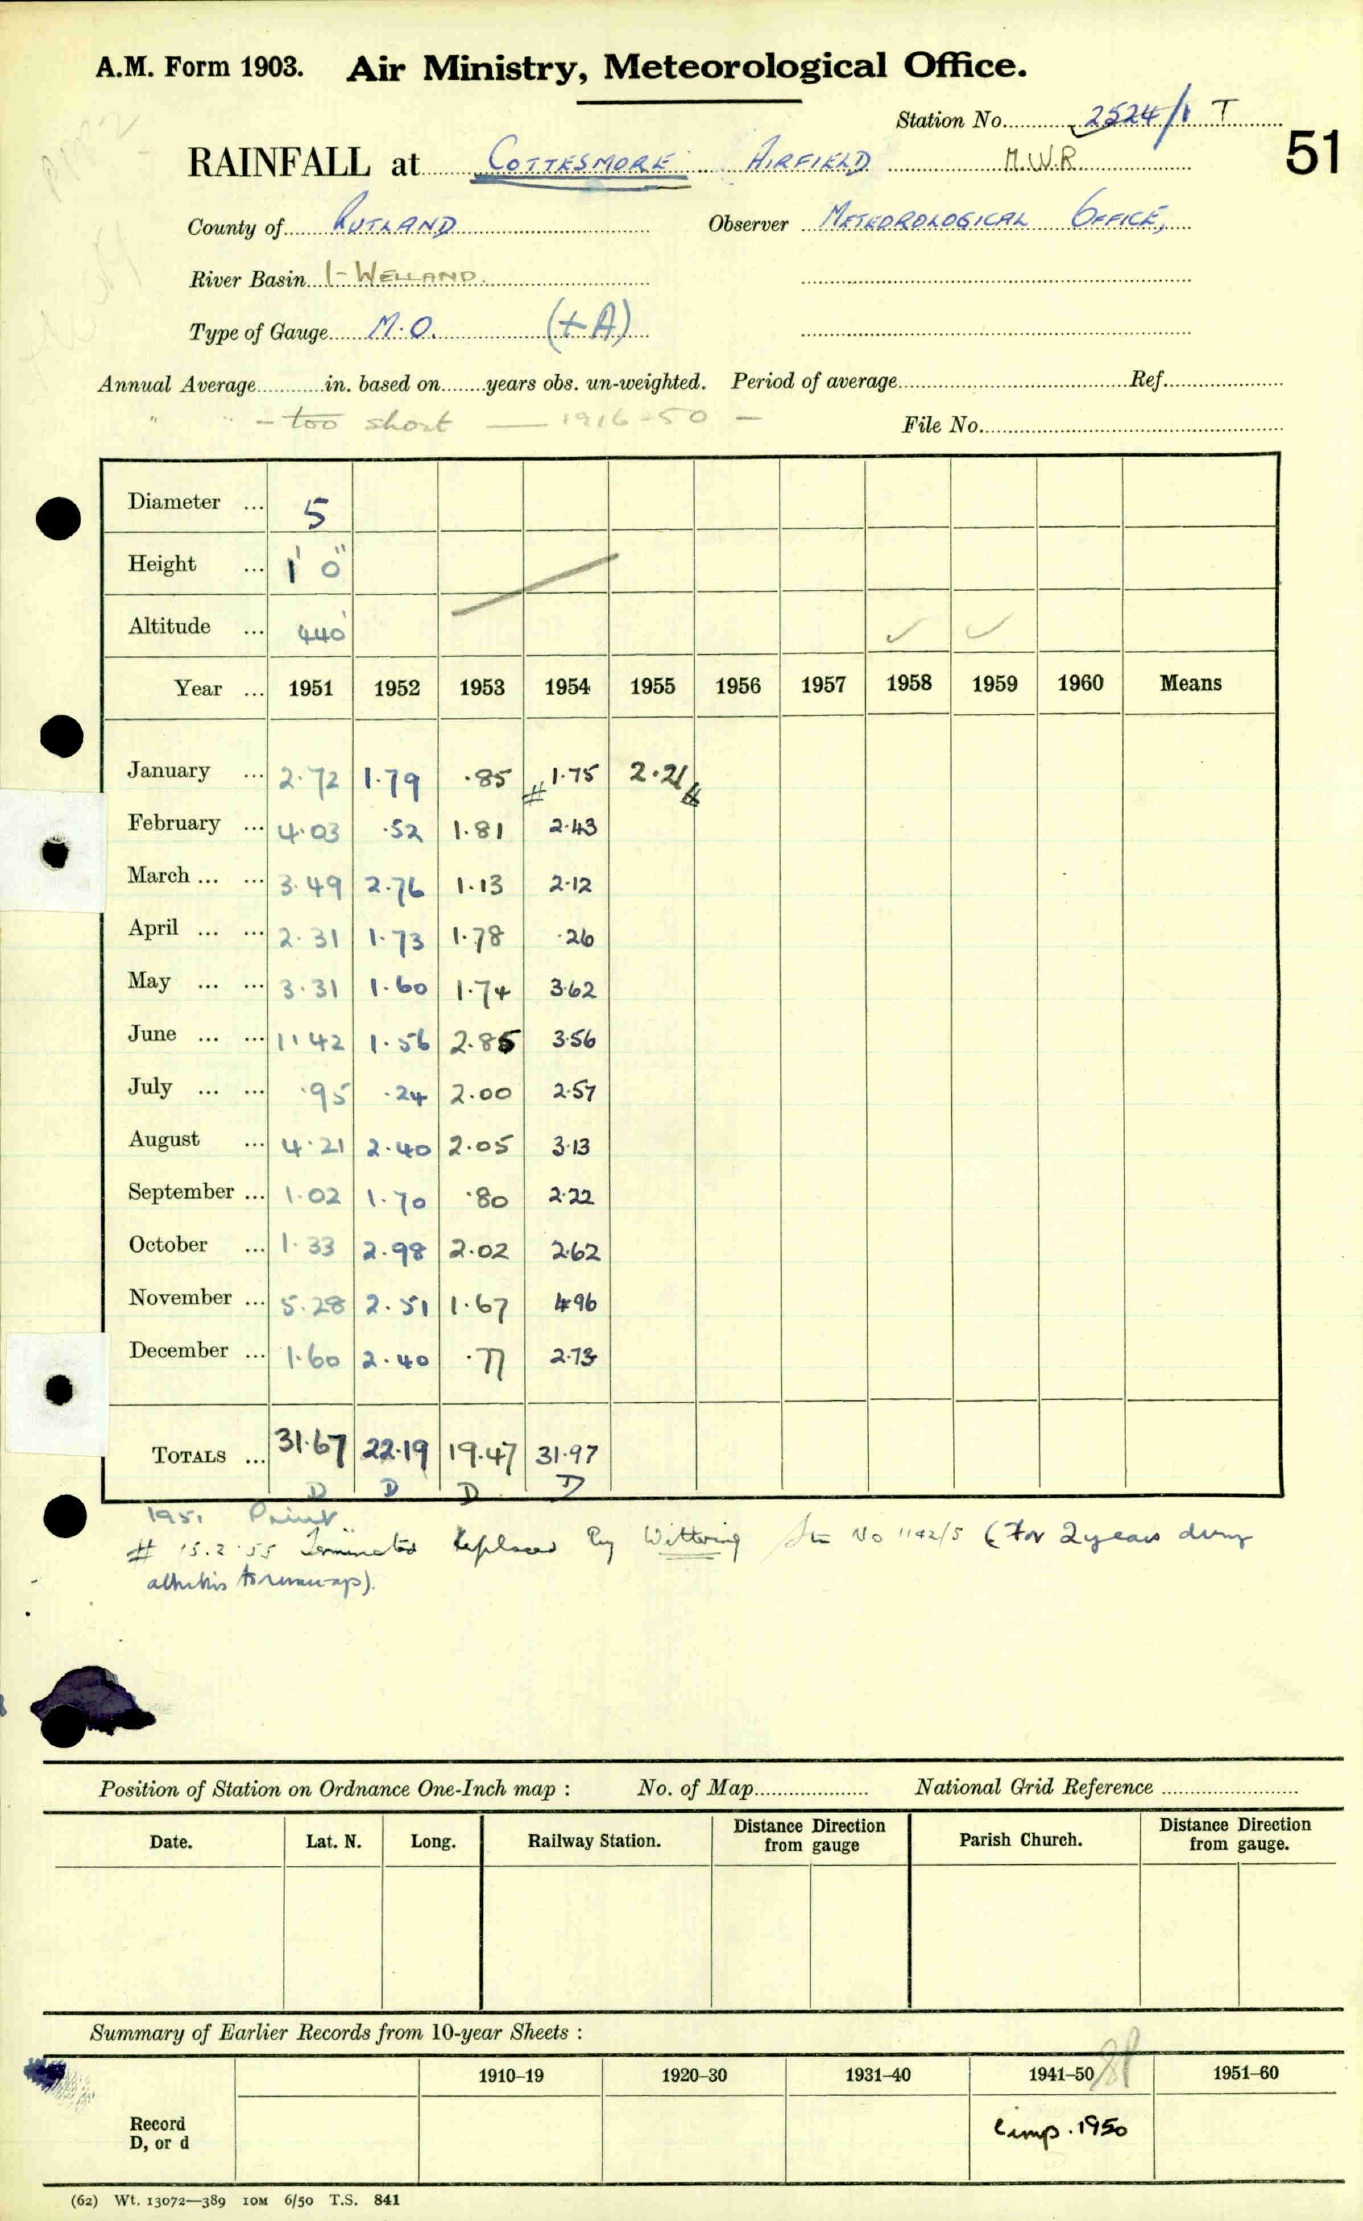 A.M. Form 1903. Air Ministry, Meteorological Office.
Station No. 2524/1 T
51
RAINFALL at COTTESMORE AIRFIELD M.W.R.
County of RUTLAND Observer METEOROLOGICAL OFFICE,
River Basin 1-WELLAND.
Type of Gauge M.O. (+A)
Annual Average in. based on years obs. un-weighted. Period of average Ref.
" " - too short — 1916-50 - File No.
Diameter ... 5
Height ... 1' 0"
Altitude ... 440'
Year ... 1951 1952 1953 1954 1955 1956 1957 1958 1959 1960 Means
January ... 2.72 1.79 .85 # 1.75 2.21 #
February ... 4.03 .52 1.81 2.43
March ... ... 3.49 2.76 1.13 2.12
April ... ... 2.31 1.73 1.78 .26
May ... ... 3.31 1.60 1.74 3.62
June ... ... 1.42 1.56 2.85 3.56
July ... ... .95 .24 2.00 2.57
August ... 4.21 2.40 2.05 3.13
September ... 1.02 1.70 .80 2.22
October ... 1.33 2.98 2.02 2.62
November ... 5.28 2.51 1.67 4.96
December ... 1.60 2.40 .77 2.73
TOTALS ... 31.67 22.19 19.47 31.97
D D D D
1951 Print
# 15.2.55 Terminated Replaced By Wittering Stn No 1142/5 (For 2 years
to runways).
Position of Station on Ordnance One-Inch map : No. of Map National Grid Reference
Date. Lat. N. Long. Railway Station. Distance Direction from gauge Parish Church. Distance Direction from gauge.
Summary of Earlier Records from 10-year Sheets :
1910–19 1920–30 1931–40 1941–50 1951–60
Record
D, or d
comp. 1950
(62) Wt. 13072—389 10M 6/50 T.S. 841